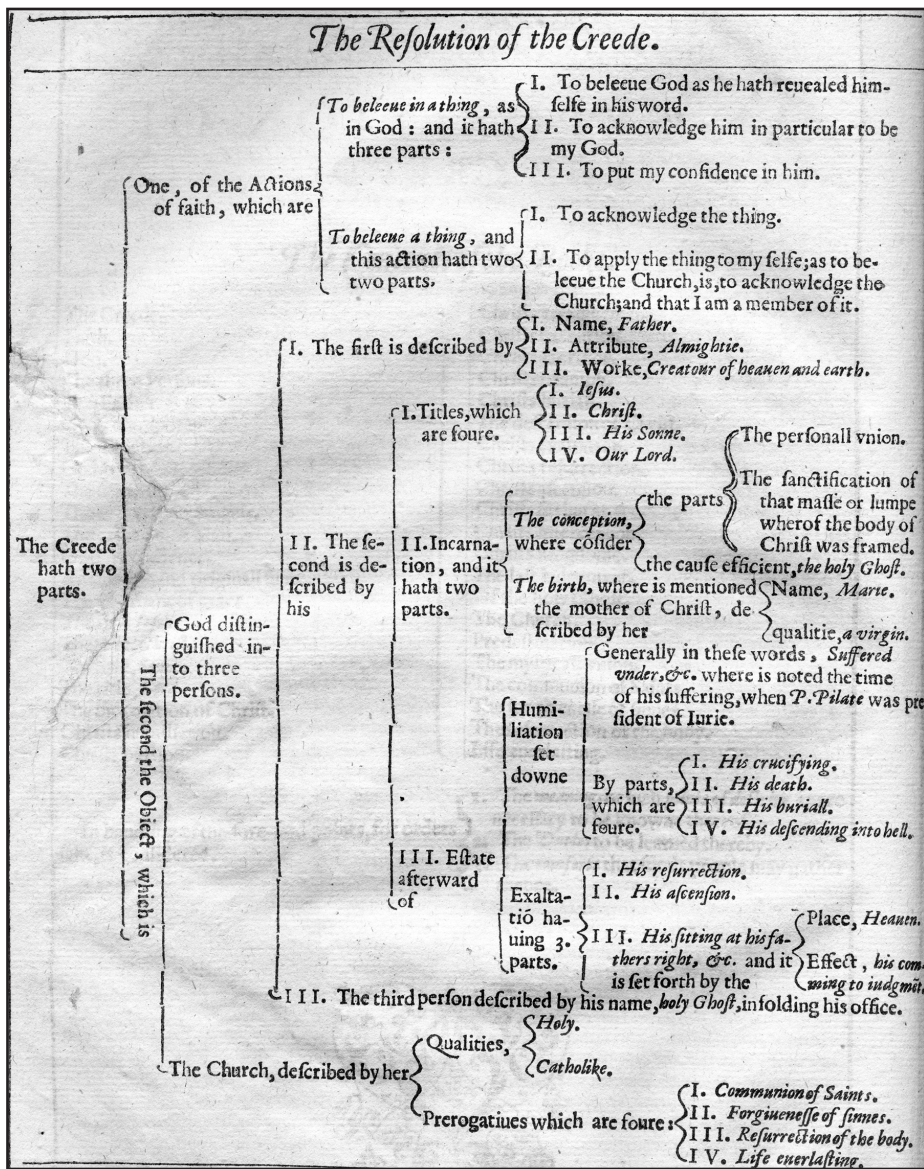 The Reſolution of the Creede.
The Creede
hath two
parts.
One, of the Actions
of faith, which are
To beleeue in a thing, as
in God : and it hath
three parts :
I. To beleeue God as he hath reuealed him-
ſelfe in his word.
II. To acknowledge him in particular to be
my God.
III. To put my confidence in him.
To beleeue a thing, and
this action hath two
two parts.
I. To acknowledge the thing.
II. To apply the thing to my ſelfe; as to be-
leeue the Church, is, to acknowledge the
Church; and that I am a member of it.
The ſecond the Obiect, which is
God diſtin-
guiſhed in-
to three
perſons.
I. The firſt is deſcribed by
I. Name, Father.
II. Attribute, Almightie.
III. Worke, Creatour of heauen and earth.
II. The ſe-
cond is de-
ſcribed by
his
I. Titles, which
are foure.
I. Ieſus.
II. Chriſt.
III. His Sonne.
IV. Our Lord.
II. Incarna-
tion, and it
hath two
parts.
The conception,
where cõſider
the parts
The perſonall vnion.
The ſanctification of
that maſſe or lumpe
wherof the body of
Chriſt was framed.
the cauſe efficient, the holy Ghoſt.
The birth, where is mentioned
the mother of Chriſt, de-
ſcribed by her
Name, Marie.
qualitie, a virgin.
III. Eſtate
afterward
of
Humi-
liation
ſet
downe
Generally in theſe words, Suffered
vnder, &c. where is noted the time
of his ſuffering, when P. Pilate was pre
ſident of Iurie.
By parts,
which are
foure.
I. His crucifying.
II. His death.
III. His buriall.
IV. His deſcending into hell.
Exalta-
tiõ ha-
uing 3.
parts.
I. His reſurrection.
II. His aſcenſion.
III. His ſitting at his fa-
thers right, &c. and it
is ſet forth by the
Place, Heauen.
Effect, his com-
ming to iudgmēt.
III. The third perſon deſcribed by his name, holy Ghoſt, infolding his office.
The Church, deſcribed by her
Qualities,
Holy.
Catholike.
Prerogatiues which are foure :
I. Communion of Saints.
II. Forgiueneſſe of ſinnes.
III. Reſurrection of the body.
IV. Life euerlaſting.